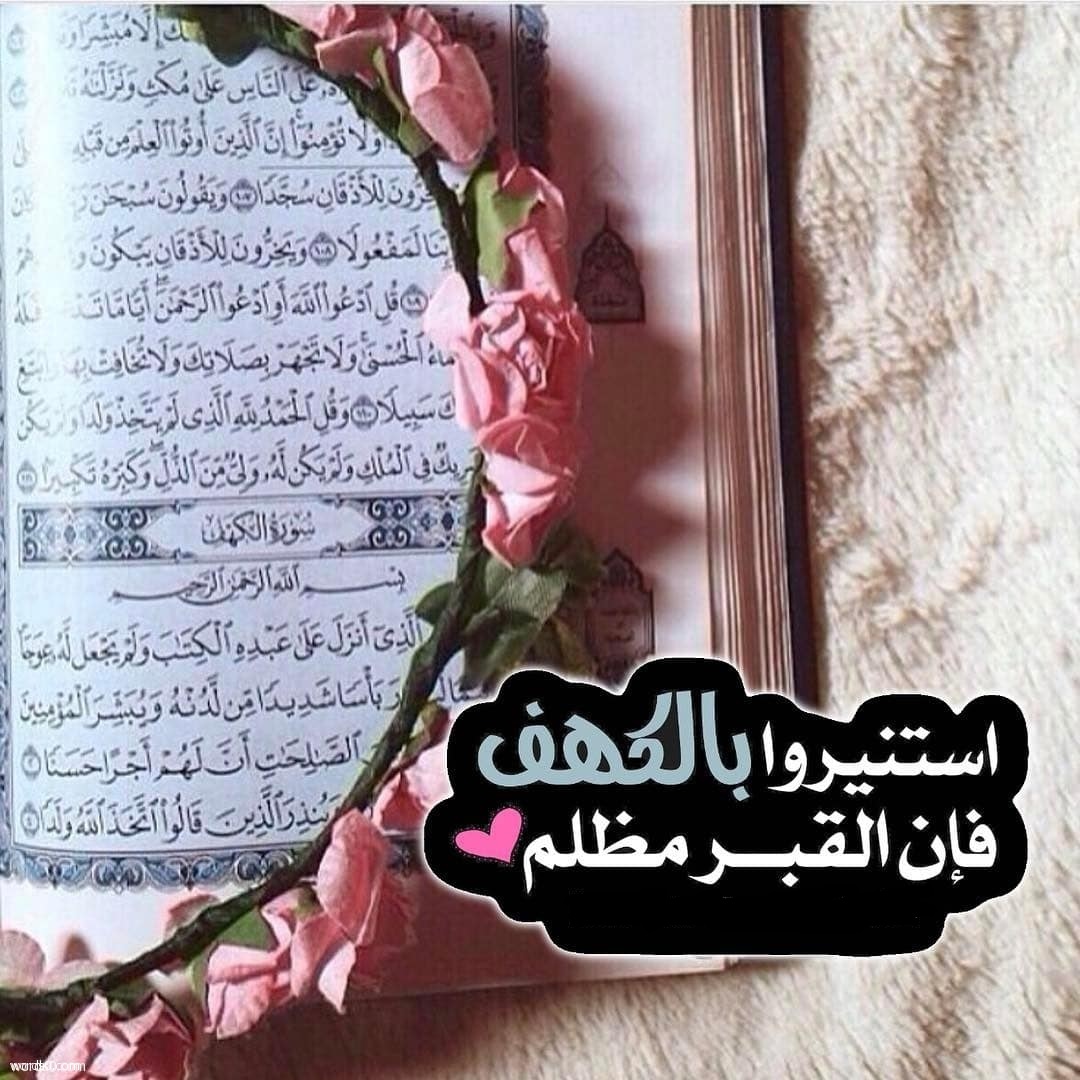 إلا مبشرا
على ٱلناس على مكث ونزلنه
أولا تؤمنوا إن ٱلذين أوتوا ٱلعلم من قبله
للأذقان سجدا ١٠٧ ويقولون سبحن
لمفعولا ١٠٨ ويخرون للأذقان يبكون
١٠٩ قل ٱدعوا ٱلله أو ٱدعوا ٱلرحمن أيا ما
ٱلحسنى ولا تجهر بصلاتك ولا تخافت بها وٱبتغ
سبيلا ١١٠ وقل ٱلحمد لله ٱلذى لم يتخذ ولدا ولم يكن
فى ٱلملك ولم يكن له ولى من ٱلذل وكبره تكبيرا ١١١
سورة الكهف
بسم ٱلله ٱلرحمن ٱلرحيم
ٱلذى أنزل على عبده ٱلكتب ولم يجعل له عوجا
بأسا شديدا من لدنه ويبشر ٱلمؤمنين
ٱلصلحت أن لهم أجرا حسنا ٢
وينذر ٱلذين قالوا ٱتخذ ٱلله ولدا ٤
استنيروا بالكهف
فإن القبر مظلم